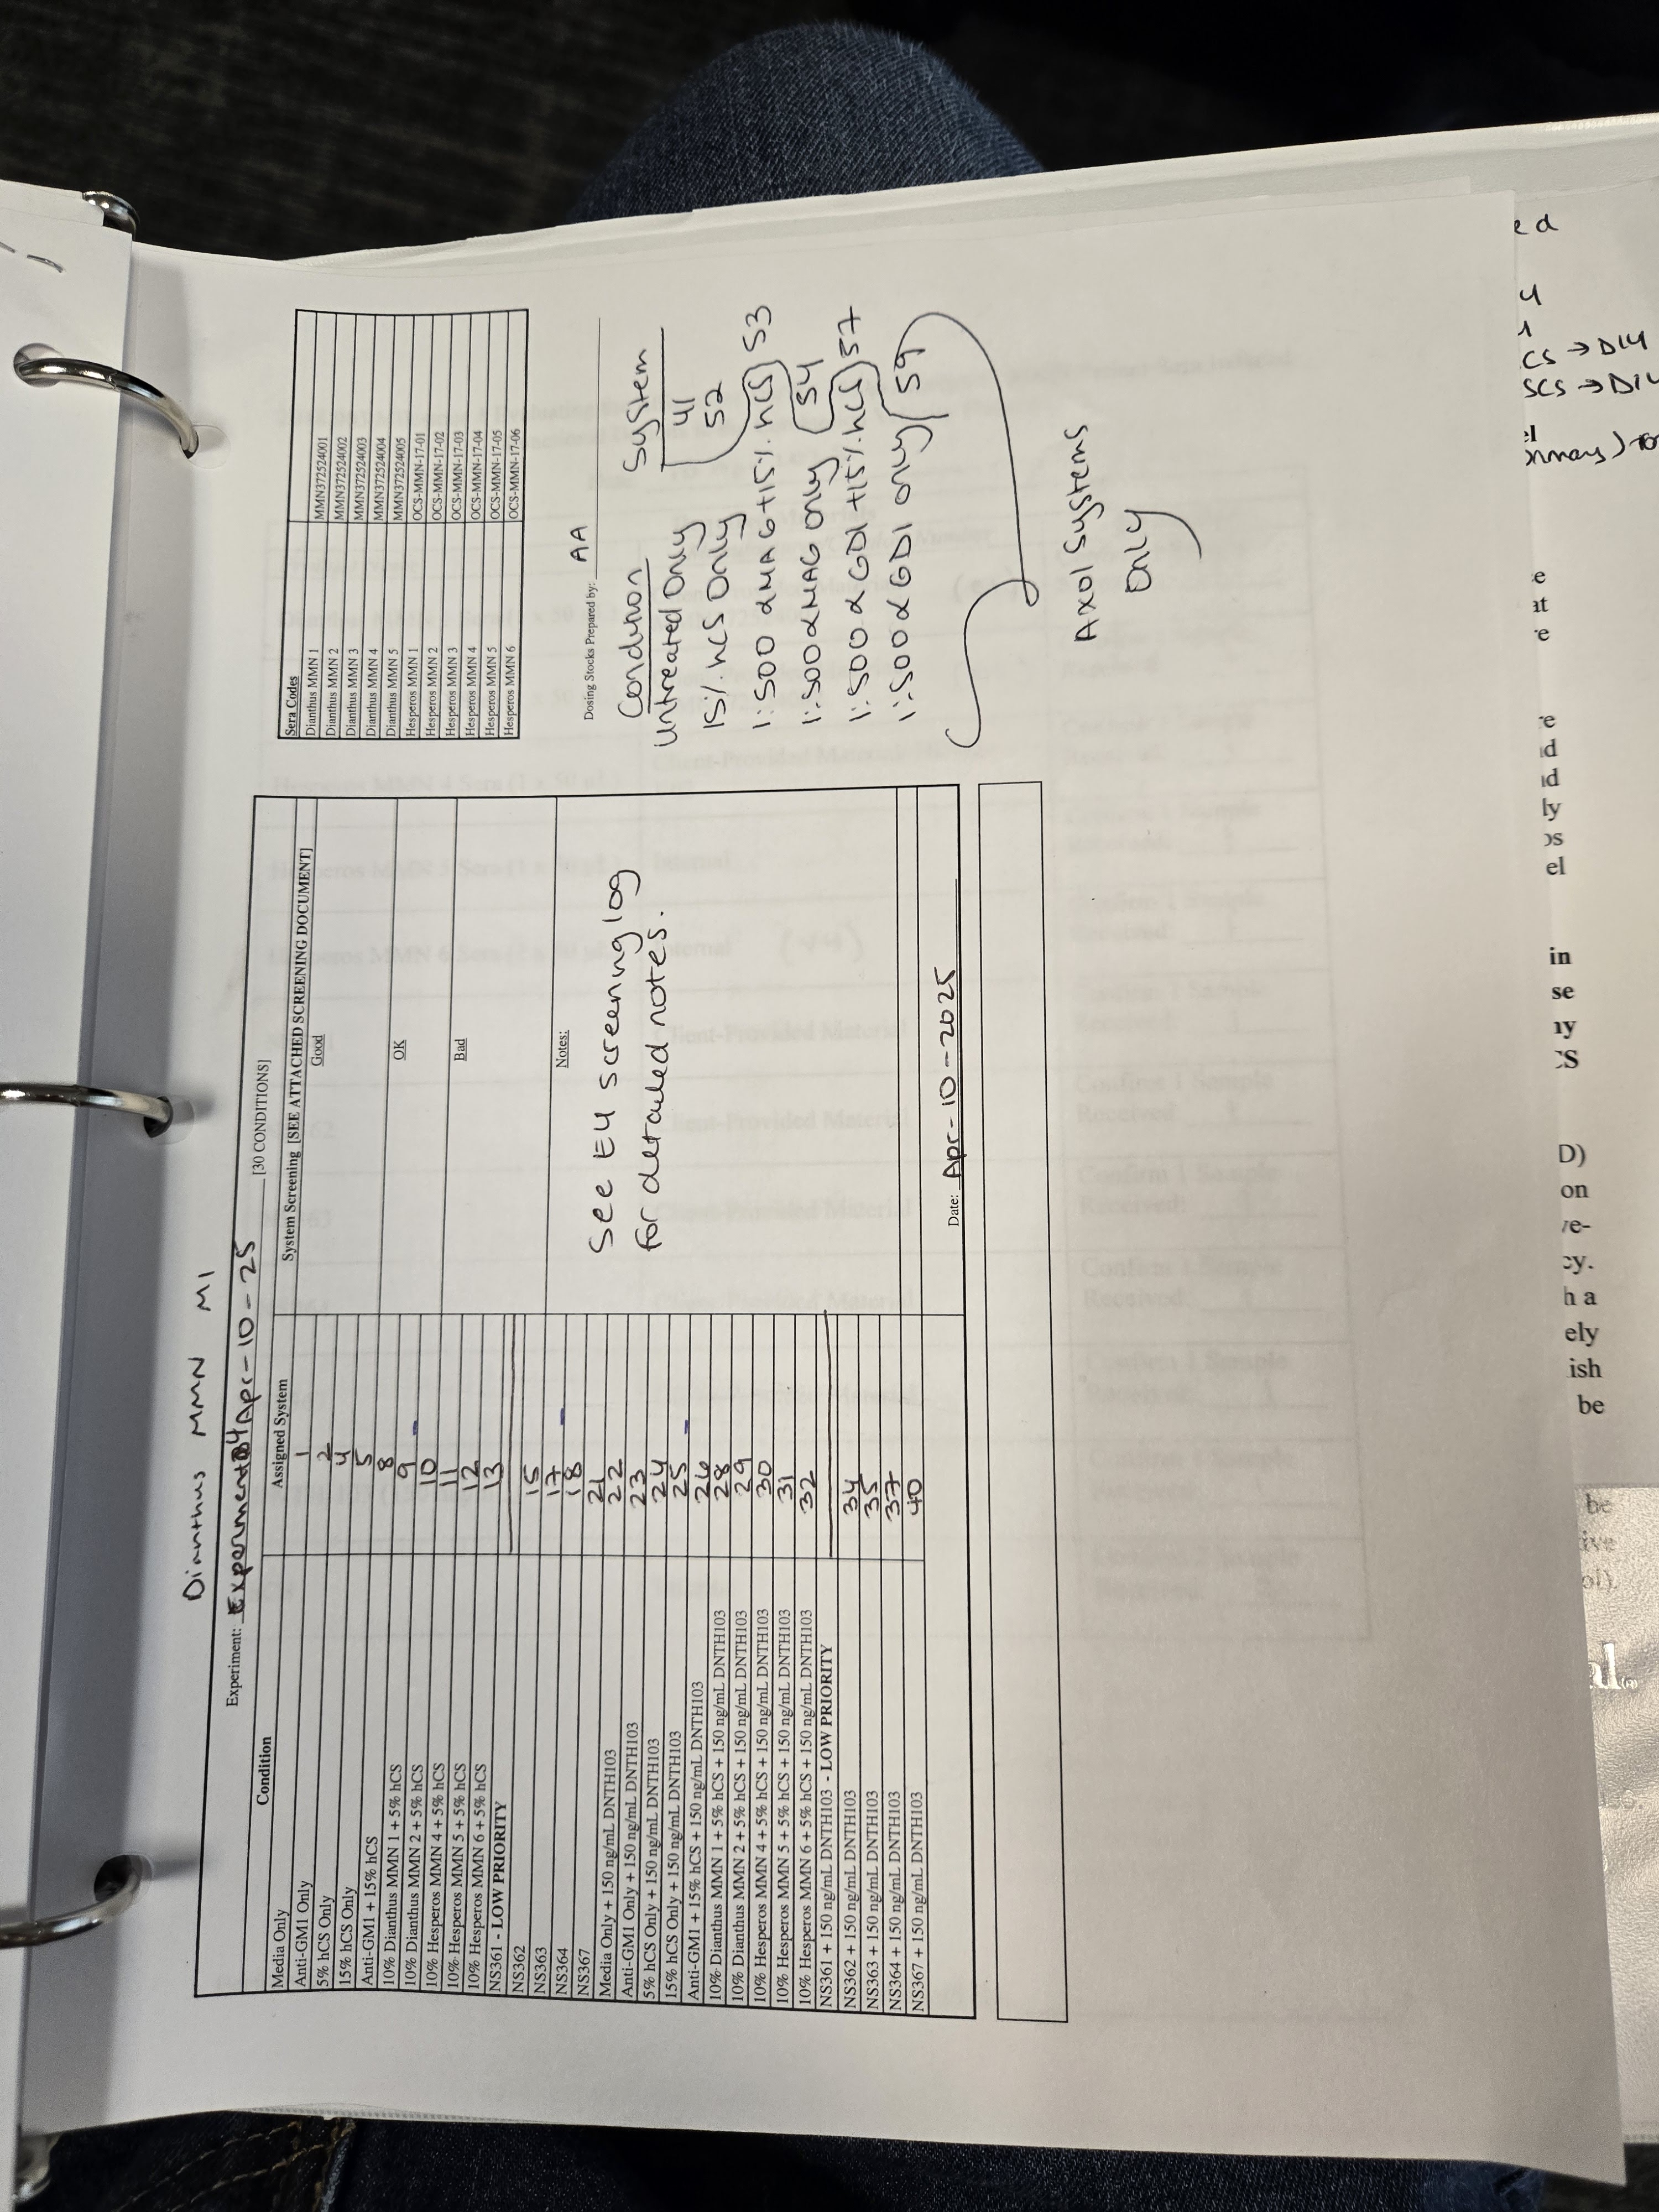 Dianthus MMN M1
Experiment: Experiment 4 Apr-10-25 [30 CONDITIONS]
Condition Assigned System System Screening [SEE ATTACHED SCREENING DOCUMENT]
Media Only 1
Anti-GM1 Only 2
5% hCS Only 4
15% hCS Only 5
Anti-GM1 + 15% hCS 8
10% Dianthus MMN 1 + 5% hCS 9
10% Dianthus MMN 2 + 5% hCS 10
10% Hesperos MMN 4 + 5% hCS 11
10% Hesperos MMN 5 + 5% hCS 12
10% Hesperos MMN 6 + 5% hCS 13
NS361 - LOW PRIORITY
NS362 15
NS363 17
NS364 18
NS367 21
Media Only + 150 ng/mL DNTH103 22
Anti-GM1 Only + 150 ng/mL DNTH103 23
5% hCS Only + 150 ng/mL DNTH103 24
15% hCS Only + 150 ng/mL DNTH103 25
Anti-GM1 + 15% hCS + 150 ng/mL DNTH103 26
10% Dianthus MMN 1 + 5% hCS + 150 ng/mL DNTH103 28
10% Dianthus MMN 2 + 5% hCS + 150 ng/mL DNTH103 29
10% Hesperos MMN 4 + 5% hCS + 150 ng/mL DNTH103 30
10% Hesperos MMN 5 + 5% hCS + 150 ng/mL DNTH103 31
10% Hesperos MMN 6 + 5% hCS + 150 ng/mL DNTH103 32
NS361 + 150 ng/mL DNTH103 - LOW PRIORITY
NS362 + 150 ng/mL DNTH103 34
NS363 + 150 ng/mL DNTH103 35
NS364 + 150 ng/mL DNTH103 37
NS367 + 150 ng/mL DNTH103 40
Good
OK
Bad
Notes:
See E4 screening log
for detailed notes.
Date: Apr-10-2025
Sera Codes
Dianthus MMN 1 MMN372524001
Dianthus MMN 2 MMN372524002
Dianthus MMN 3 MMN372524003
Dianthus MMN 4 MMN372524004
Dianthus MMN 5 MMN372524005
Hesperos MMN 1 OCS-MMN-17-01
Hesperos MMN 2 OCS-MMN-17-02
Hesperos MMN 3 OCS-MMN-17-03
Hesperos MMN 4 OCS-MMN-17-04
Hesperos MMN 5 OCS-MMN-17-05
Hesperos MMN 6 OCS-MMN-17-06
Dosing Stocks Prepared by: AA
Condition System
Untreated Only 41
15% hCS Only 52
1:500 αMAG+15% hCS 53
1:500 αMAG only 54
1:500 αGD1 +15% hCS 57
1:500 αGD1 only 59
Axol Systems
Only